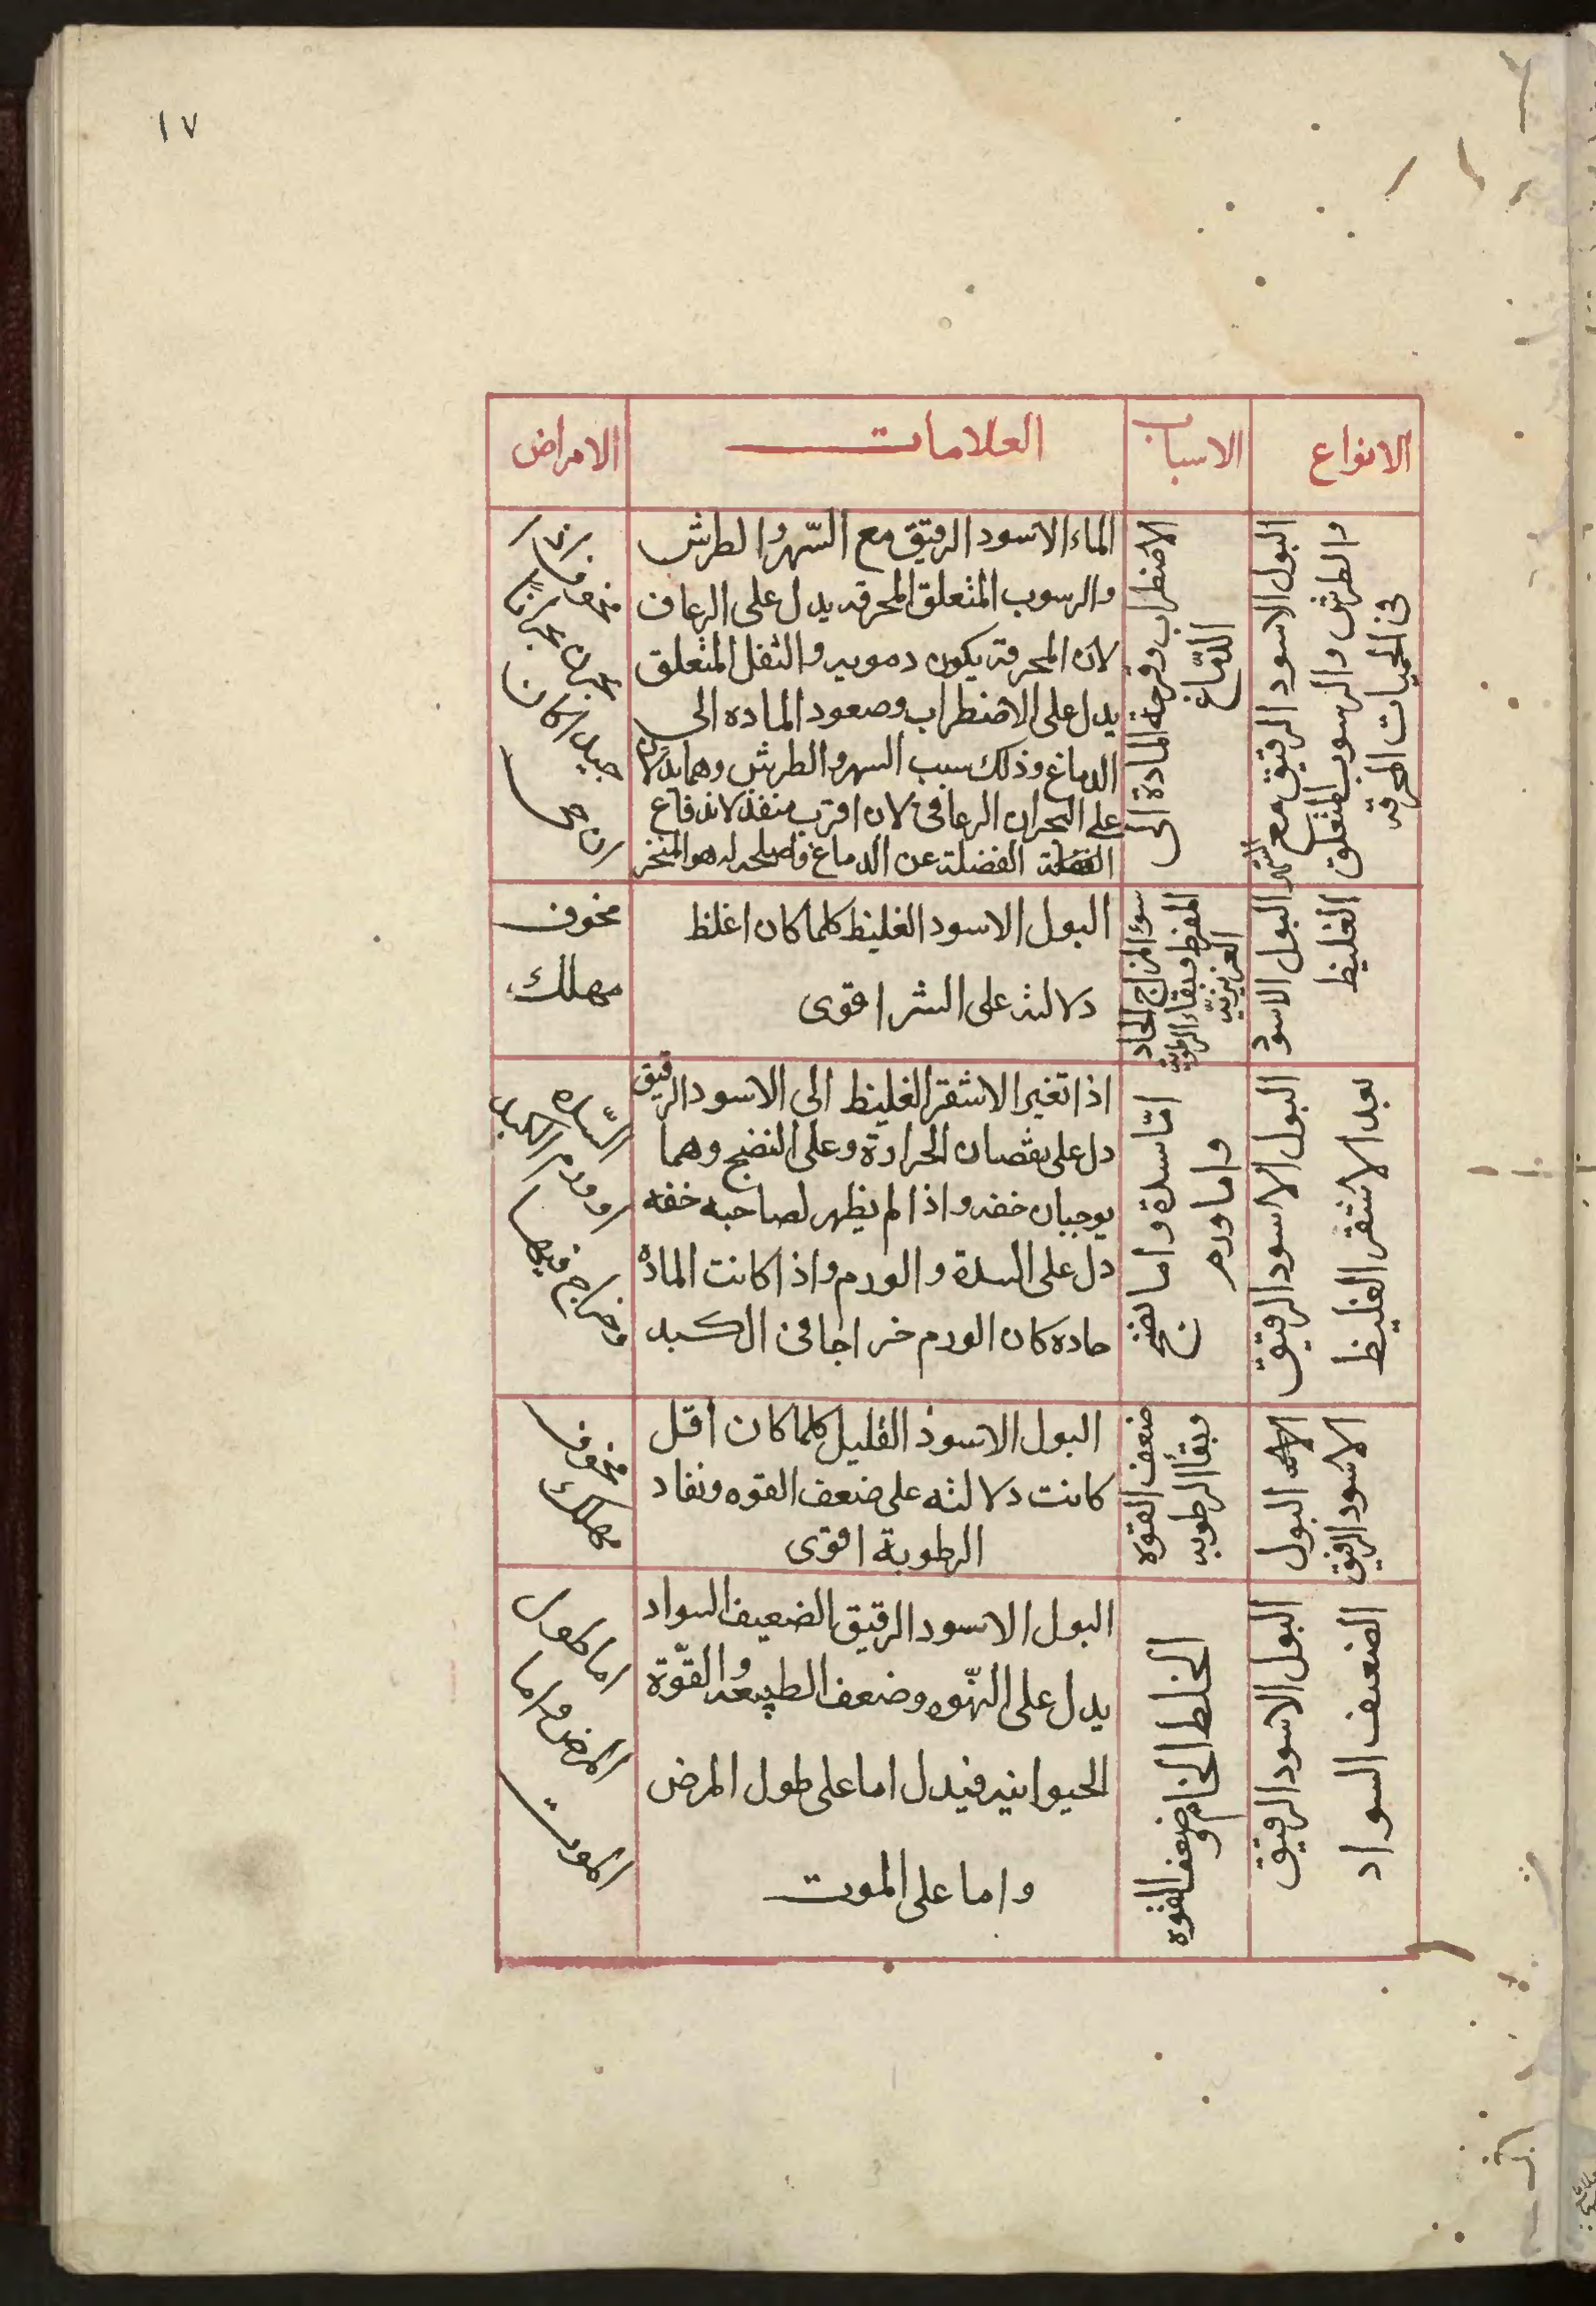 ١٧
الانواع
الاسباب
العلامات
الامراض
البول الاسود الرقيق مع السهر
والطرش والرسوب المتعلق
فى الحميات المحرقه
الاضطراب وفرحة المادة الى
الدماغ
الماء الاسود الرقيق مع السّهر والطرش
والرسوب المتعلق المحرقه يدل على الرعاف
لان المحرقة يكون دمويه والثفل المتعلق
يدل على الاضطراب وصعود الماده الى
الدماغ وذلك سبب السهر والطرش وهما يدلان
على البحران الرعافى لان اقرب منفذ لاندفاع
الفضلة عن الدماغ واصلحه له هو المنخر
مخوف
بحرانا
جيد كان
البول الاسود
الغليظ
سوء المزاج الحاد
المفرط وبقاء الرطوبة
الغريزية
البول الاسود الغليظ كلما كان اغلظ
دلالته على الشر اقوى
مخوف
مهلك
البول الاسود الرقيق
بعد الاشقر الغليظ
امّا سدة واما نضج
واما ورم
اذا تغير الاشقر الغليظ الى الاسود الرقيق
دل على نقصان الحرارة وعلى النضج وهما
يوجبان خفه واذا لم يظهر لصاحبه خفه
دل على السدة والورم واذا كانت المادة
حاده كان الورم خراجا فى الكبد
السّده
او ورم الكبد
وخراج فيها
البول
الاسود الرقيق
ضعف القوه
وبقأ الرطوبه
البول الاسود القليل كلما كان اقل
كانت دلالته على ضعف القوه ونفاد
الرطوبة اقوى
مخوف
مهلك
البول الاسود الرقيق
الضعيف السواد
الخلط الخام و
ضعف القوه
البول الاسود الرقيق الضعيف السواد
يدل على النّهوه وضعف الطبيعه والقوّة
الحيوانيه فيدل اما على طول المرض
واما على الموت
اما طول
المرض واما
الموت